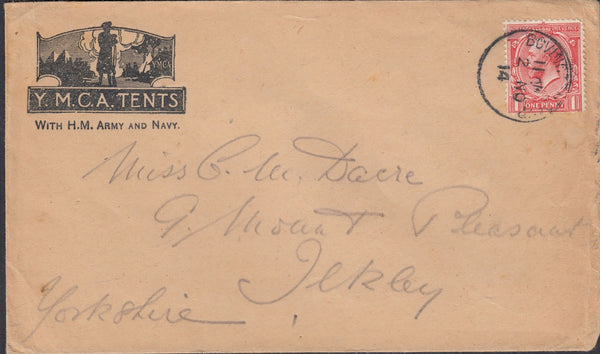 Y.M.C.A. TENTS
WITH H.M. ARMY AND NAVY.
ONE PENNY
14
Miss C. M. Dacre
9. Mount Pleasant
Ilkley
Yorkshire